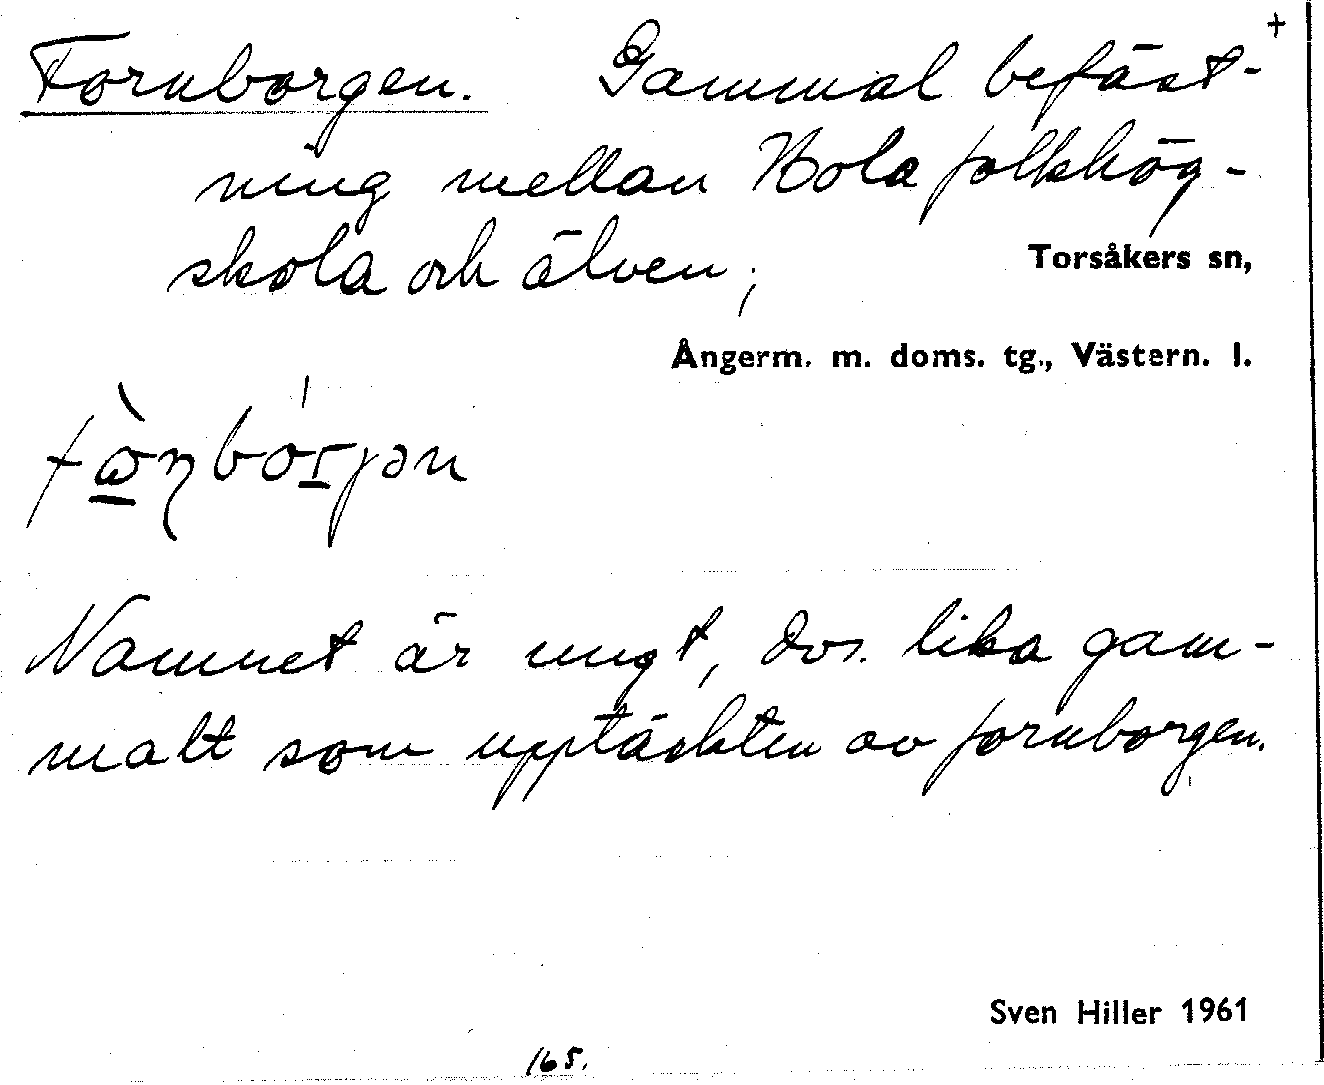 +
Fornborgen. Gammal befäst-
ning mellan Hola folkhög-
skola och älven;
Torsåkers sn,
Ångerm. m. doms. tg., Västern. l.
Namnet är ungt, dvs. lika gam-
malt som upptäckten av fornborgen.
Sven Hiller 1961
165.